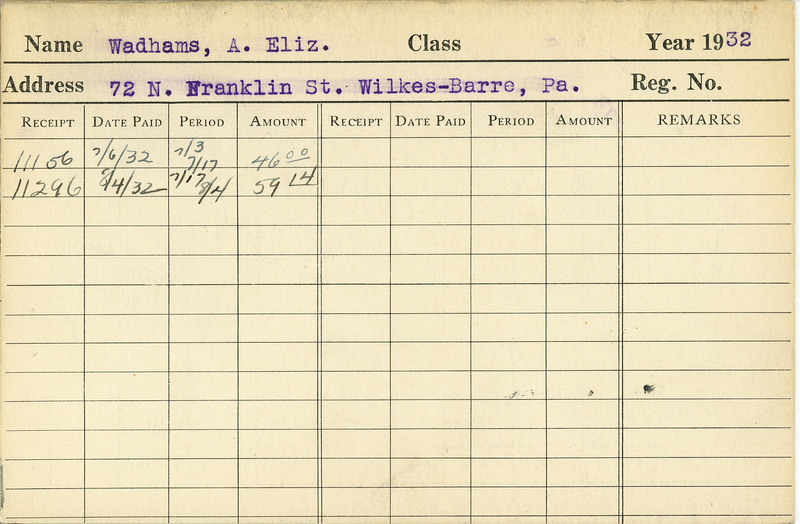 Name Wadhams, A. Eliz. Class Year 1932
Address 72 N. Franklin St. Wilkes-Barre, Pa. Reg. No.
RECEIPT DATE PAID PERIOD AMOUNT RECEIPT DATE PAID PERIOD AMOUNT REMARKS
11156 7/6/32 7/3 7/17 46 00
11296 8/4/32 7/17 8/4 59 14